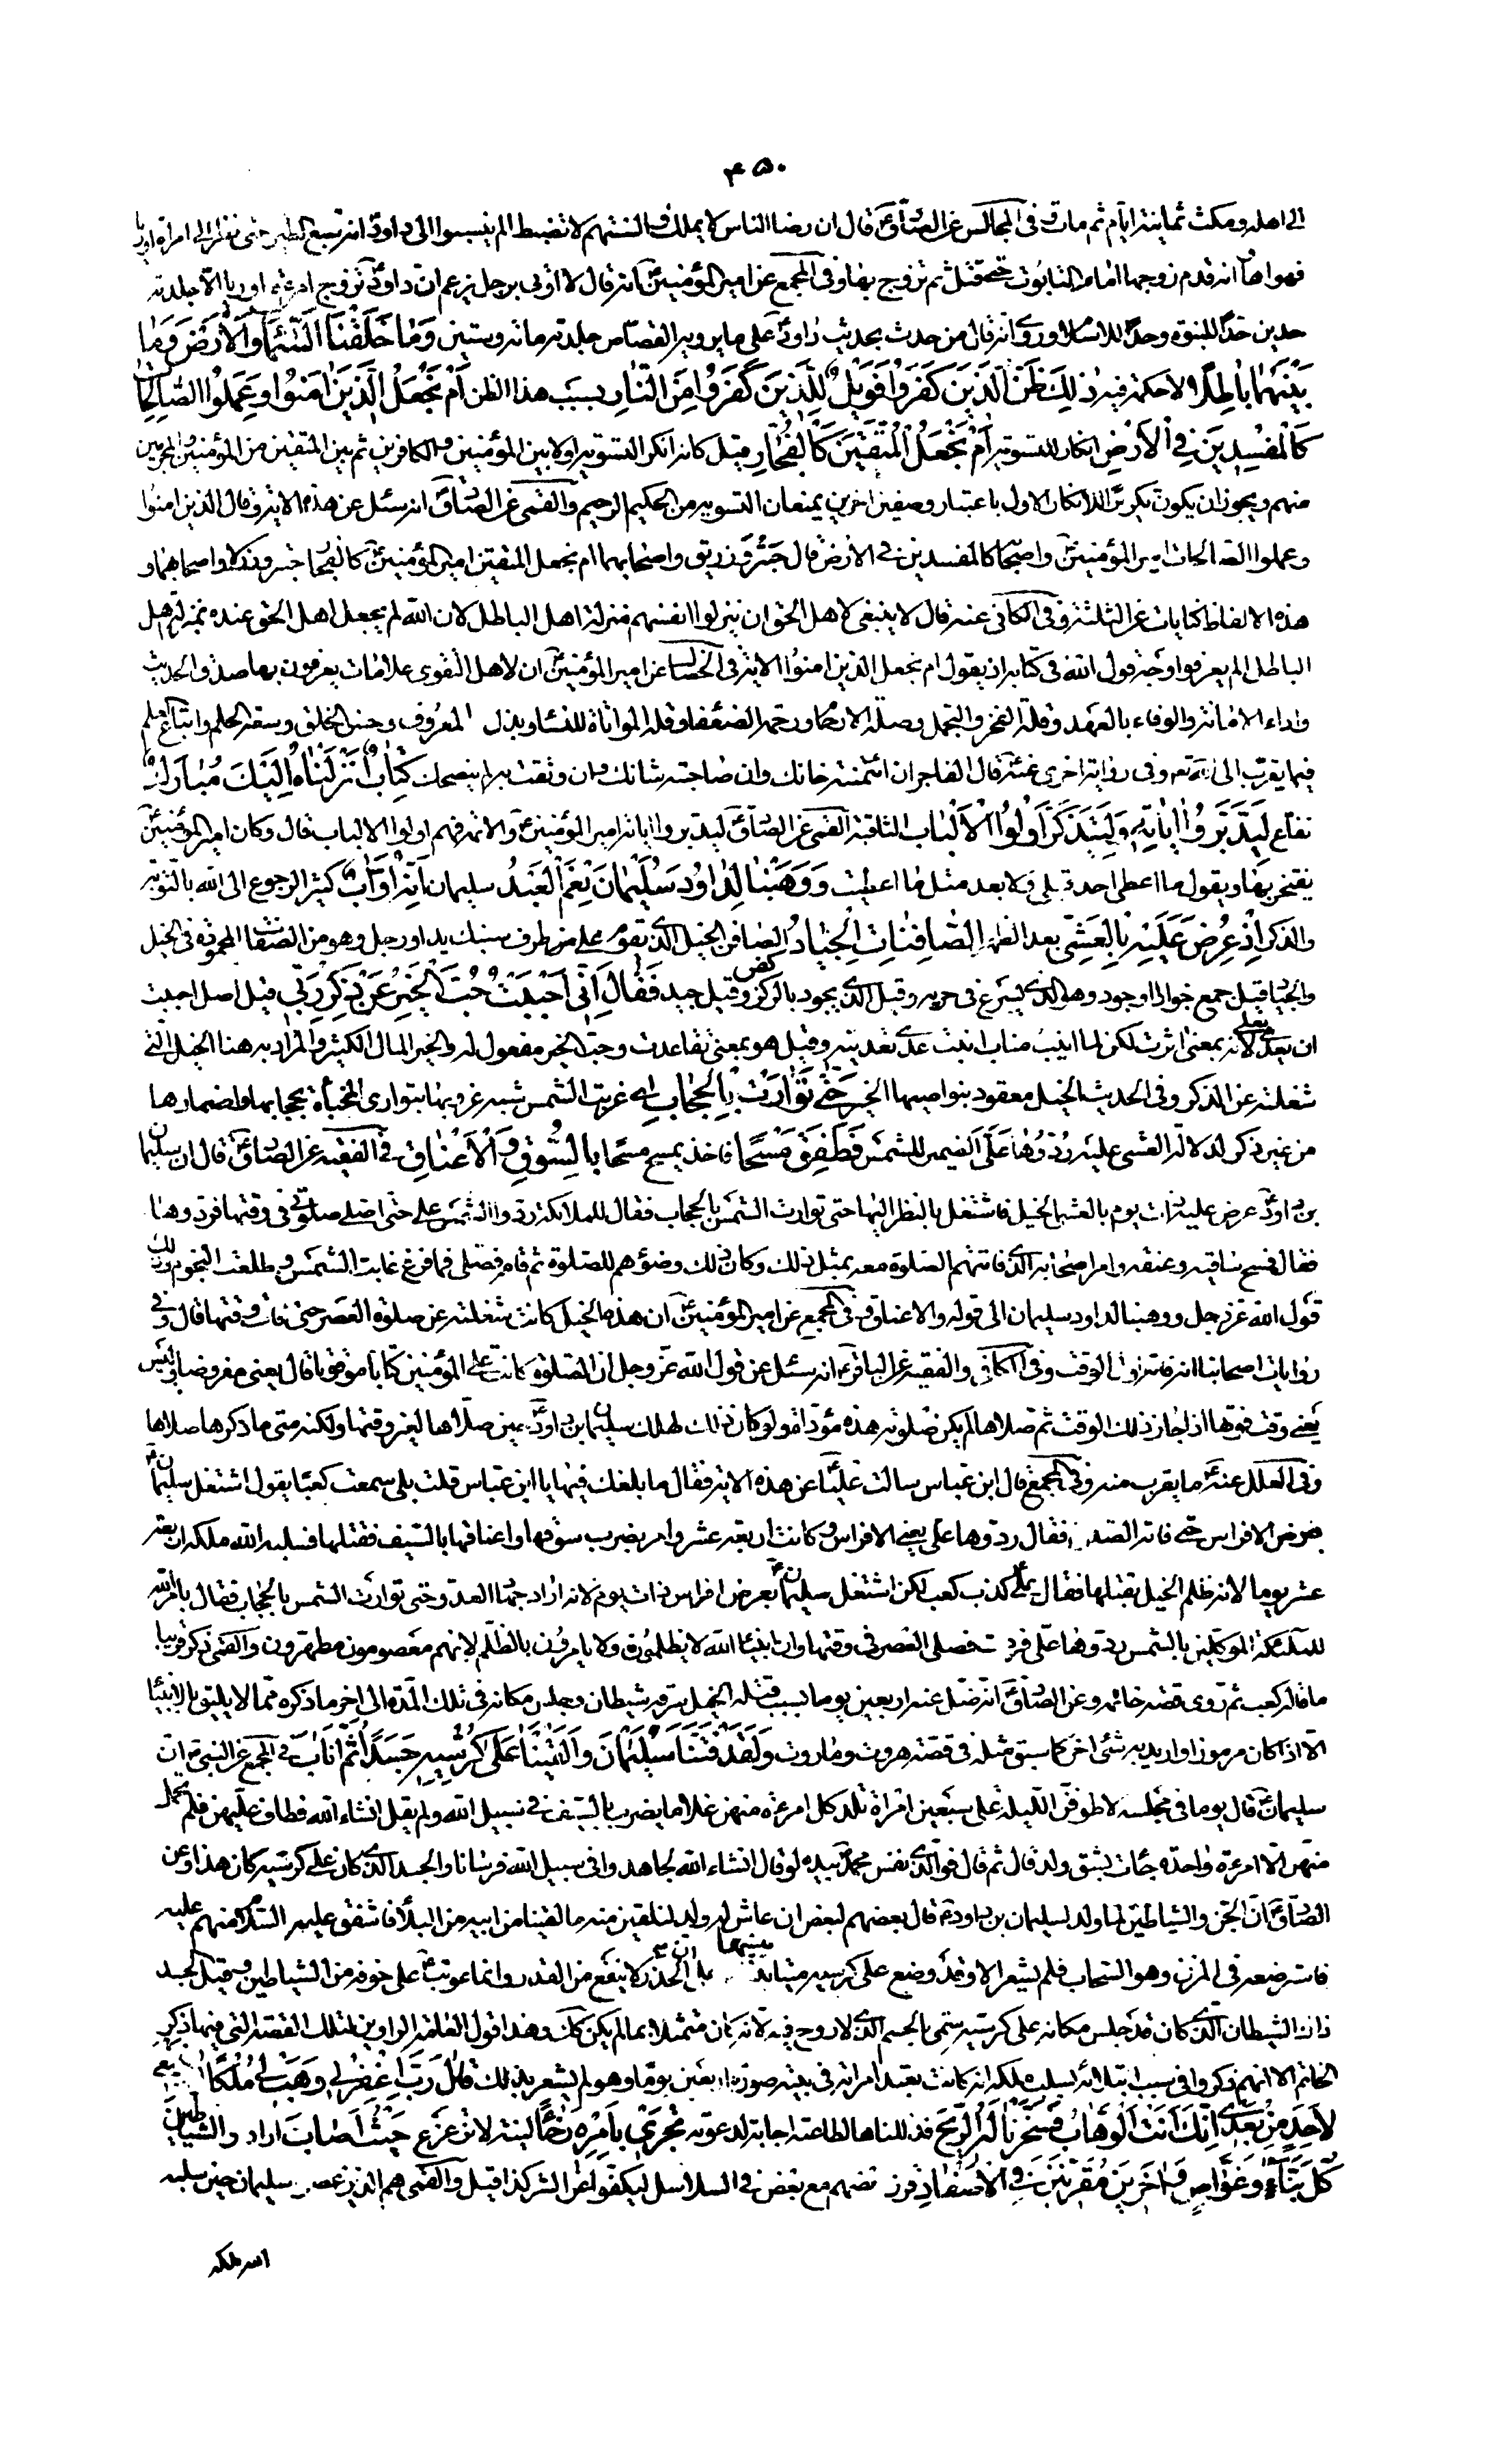 ۴۵۰
الى اهله ومكث ثمانية ايام ثم مات وفى المجالس عن الصادقؑ قال ان رضا الناس لا يملك والسنتهم لا تضبط الم ينسبوا الى داودؑ انه تبع الطير حتى نظر الى امراة اوريا
فهواها انه قدم زوجها امام التابوت حتى قتل ثم تزوج بها وفى المجمع عن امير المؤمنينؑ انه قال لا اوتى برجل يزعم ان داودؑ تزوج امرءة اوريا الا جلدته
حدين حدا للنبوة وحدا للاسلام وروى انه قال من حدث بحديث داودؑ على ما يرويه القصاص جلدته مائة وستين وَمَا خَلَقْنَا السَّمَاءَ وَالْاَرْضَ وَمَا
بَيْنَهُمَا بَاطِلًا لا حكمة فيه ذٰلِكَ ظَنُّ الَّذِينَ كَفَرُوا فَوَيْلٌ لِلَّذِينَ كَفَرُوا مِنَ النَّارِ بسبب هذا الظن اَمْ نَجْعَلُ الَّذِينَ اٰمَنُوا وَعَمِلُوا الصَّالِحَاتِ
كَالْمُفْسِدِينَ فِي الْاَرْضِ انكار للتسوية اَمْ نَجْعَلُ الْمُتَّقِينَ كَالْفُجَّارِ قيل كانه انكر التسوية اولا بين المؤمنين والكافرين ثم بين المتقين من المؤمنين والمجرمين
منهم ويجوز ان يكون تكريرا للانكار الاول باعتبار وصفين اخرين يمنعان التسوية من الحكيم الرحيم والقمى عن الصادقؑ انه سئل عن هذه الاية فقال الذين امنوا
وعملوا الصالحات امير المؤمنينؑ واصحابه كالمفسدين فى الارض قال حبتر وزريق واصحابهما ام نجعل المتقين امير المؤمنينؑ كالفجار حبتر ودلام واصحابهما و
هذه الالفاظ كنايات عن الثلثة وفى الكافى عنه قال لا ينبغى لاهل الحق ان ينزلوا انفسهم منزلة اهل الباطل لان الله لم يجعل اهل الحق عنده بمنزلة اهل
الباطل الم يعرفوا وجه قول الله فى كتابه اذ يقول ام نجعل الذين امنوا الاية وفى الخصال عن امير المؤمنينؑ ان لاهل التقوى علامات يعرفون بها صدق الحديث
واداء الامانة والوفاء بالعهد وقلة الفخر والتجمل وصلة الارحام ورحمة الضعفاء وقلة المواتاة للنساء وبذل المعروف وحسن الخلق وسعة الحلم واتباع العلم
فيما يقرب الى الله تعه وفى رواية اخرى عنهؑ قال الفاجر ان ائتمنته خانك وان صاحبته شانك وان وثقت به لم ينصحك كِتَابٌ اَنْزَلْنَاهُ اِلَيْكَ مُبَارَكٌ
نفاع لِيَدَّبَّرُوا اٰيَاتِهِ وَلِيَتَذَكَّرَ اُولُوا الْاَلْبَابِ الثاقبة القمى عن الصادقؑ ليدبروا اياته امير المؤمنينؑ والائمة فهم اولوا الالباب قال وكان امير المؤمنينؑ
يفتخر بها ويقول ما اعطى احد قبلى ولا بعدى مثل ما اعطيت وَوَهَبْنَا لِدَاوُدَ سُلَيْمَانَ نِعْمَ الْعَبْدُ سليمان اِنَّهُ اَوَّابٌ كثير الرجوع الى الله بالتوبة
والذكر اِذْ عُرِضَ عَلَيْهِ بِالْعَشِيِّ بعد الظهر الصَّافِنَاتُ الْجِيَادُ الصافن الخيل الذى تقوم على طرف سنبك يد او رجل وهو من الصفات المحمودة فى الخيل
والجياد قيل جمع جواد او جود وهو الذى يسرع فى جريه وقيل الذى يجود بالركض وقيل جيد فَقَالَ اِنِّي اَحْبَبْتُ حُبَّ الْخَيْرِ عَنْ ذِكْرِ رَبِّي قيل اصل احببت
ان يعدى بعلى لانه بمعنى اثرت لكن لما انيب مناب انبت عدى تعديته وقيل هو بمعنى تقاعدت وحب الخير مفعول له والخير المال الكثير والمراد به هنا الخيل التى
شغلته عن الذكر وفى الحديث الخيل معقود بنواصيها الخير حَتَّى تَوَارَتْ بِالْحِجَابِ اى غربت الشمس شبه غروبها بتوارى المخبأة بحجابها واضمارها
من غير ذكر لدلالة العشى عليه رُدُّوهَا عَلَيَّ الضمير للشمس فَطَفِقَ مَسْحًا فاخذ يمسح مسحا بِالسُّوقِ وَالْاَعْنَاقِ فى الفقيه عن الصادقؑ قال ان سليمان
بن داودؑ عرض عليه ذات يوم بالعشى الخيل فاشتغل بالنظر اليها حتى توارت الشمس بالحجاب فقال للملائكة ردوا الشمس على حتى اصلى صلوتى فى وقتها فردوها
فقام فمسح ساقيه وعنقه وامر اصحابه الذين فاتتهم الصلوة معه بمثل ذلك وكان ذلك وضوءهم للصلوة ثم قام فصلى فلما فرغ غابت الشمس وطلعت النجوم وذلك
قول الله عز وجل ووهبنا لداود سليمان الى قوله والاعناق وفى المجمع عن امير المؤمنينؑ ان هذه الخيل كانت شغلته عن صلوة العصر حتى فات وقتها قال وفى
روايات اصحابنا انه فاته اول الوقت وفى الكافى والفقيه عن الباقرؑ انه سئل عن قول الله عز وجل ان الصلوة كانت على المؤمنين كتابا موقوتا قال يعنى مفروضا وليس
يعنى وقت فوتها اذا جاز ذلك الوقت ثم صلاها لم يكن صلوته هذه مؤداة ولو كان ذلك لهلك سليمان بن داودؑ حين صلاها لغير وقتها ولكنه متى ما ذكرها صلاها
وفى العلل عنهؑ ما يقرب منه وفى المجمع قال ابن عباس سالت علياؑ عن هذه الاية فقال ما بلغك فيها يا ابن عباس قلت بلى سمعت كعبا يقول اشتغل سليمانؑ
بعرض الافراس حتى فاتته الصلوة فقال ردوها على يعنى الافراس وكانت اربعة عشر وامر بضرب سوقها واعناقها بالسيف فقتلها فسلبه الله ملكه اربعة
عشر يوما لانه ظلم الخيل بقتلها فقال علىؑ كذب كعب لكن اشتغل سليمانؑ بعرض افراس ذات يوم لانه اراد جهاد العدو حتى توارت الشمس بالحجاب فقال بامر الله
للملئكة الموكلين بالشمس ردوها على فردت فصلى العصر فى وقتها وان انبياء الله لا يظلمون ولا يامرون بالظلم لانهم معصومون مطهرون والقمى ذكر قريبا
ما قاله كعب ثم روى قصة خاتمه وعن الصادقؑ انه ضل عنه اربعين يوما بسبب قتله الخيل سرقه شيطان وجلس مكانه فى تلك المدة الى اخر ما ذكره مما لا يليق بالانبياء
الا اذا كان مرموزا واريد به شئ اخر كما سبق مثله فى قصة هروت وماروت وَلَقَدْ فَتَنَّا سُلَيْمَانَ وَاَلْقَيْنَا عَلَى كُرْسِيِّهِ جَسَدًا ثُمَّ اَنَابَ فى المجمع عن النبىؐ ان
سليمانؑ قال يوما فى مجلسه لاطوفن الليلة على سبعين امراة تلد كل امرءة منهن غلاما يضرب بالسيف فى سبيل الله ولم يقل انشاء الله فطاف عليهن فلم تحمل
منهن الا امرءة واحدة جاءت بشق ولد قال ثم قال فوالذى نفس محمد بيده لو قال انشاء الله لجاهدوا فى سبيل الله فرسانا والجسد الذى كان على كرسيه كان هذا وعن
الصادقؑ ان الجن والشياطين لما ولد لسليمان بن داودؑ قال بعضهم لبعض ان عاش له ولد لنلقين منه ما لقينا من ابيه من البلاء فاشفق عليه السلام منهم عليه
فاسترضعه فى المزن وهو السحاب فلم يشعر الا وقد وضع على كرسيه ميتا تنبيها على ان الحذر لا ينفع من القدر وانما عوتبؑ على خوفه من الشياطين وقيل الجسد
ذاك الشيطان الذى كان قد جلس مكانه على كرسيه سمى بالجسم الذى لا روح فيه لانه كان متمثلا بما لم يكن كك وهذا قول العامة الراوين لتلك القصة التى فيها ذكر
الخاتم الا انهم ذكروا فى سبب ابتلائه لسلب ملكه انه كانت تعبد امراته فى بيته صورة اربعين يوما وهو لم يشعر بذلك قَالَ رَبِّ اغْفِرْ لِي وَهَبْ لِي مُلْكًا لَا يَنْبَغِي
لِاَحَدٍ مِنْ بَعْدِي اِنَّكَ اَنْتَ الْوَهَّابُ فَسَخَّرْنَا لَهُ الرِّيحَ فذللناها لطاعته اجابة لدعوته تَجْرِي بِاَمْرِهِ رُخَاءً لينة لا تزعزع حَيْثُ اَصَابَ اراد وَالشَّيَاطِينَ
كُلَّ بَنَّاءٍ وَغَوَّاصٍ وَاٰخَرِينَ مُقَرَّنِينَ فِي الْاَصْفَادِ قرن بعضهم مع بعض فى السلاسل ليكفوا عن الشر كذا قيل والقمى هم الذين عصوا سليمان حين سلبه
الله ملكه